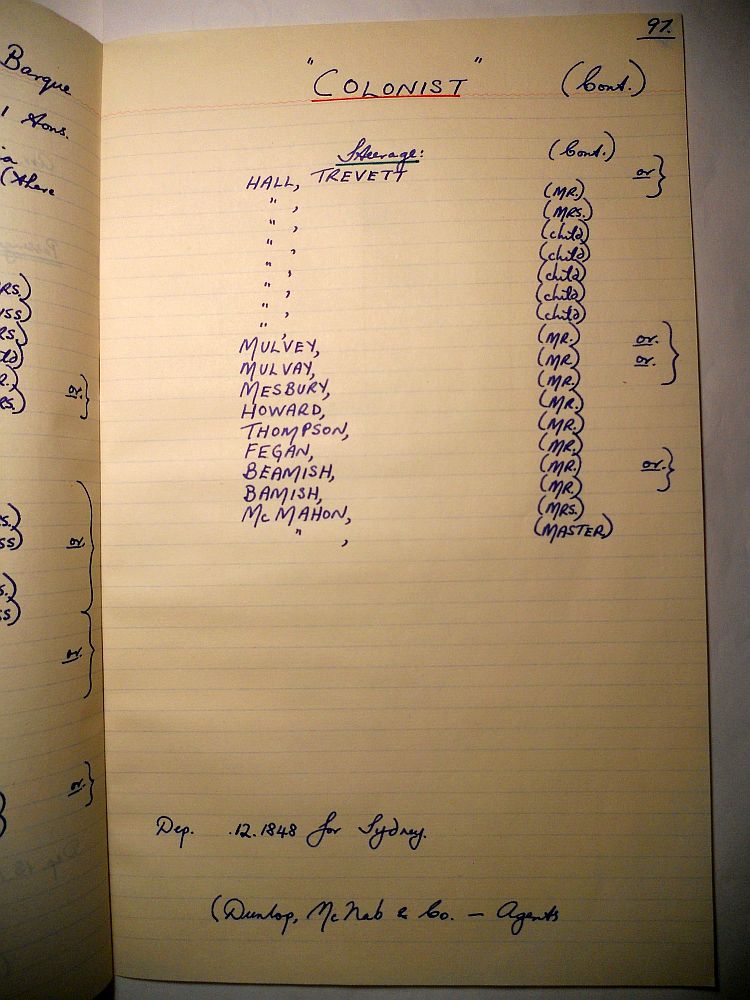 Barque
1 tons.
(there
RS.)
ISS)
RS.
ld)
R.)
or.
RS.)
S.)
SS)
or.
S.)
SS)
or.
or.
97.
"COLONIST" (Cont.)
Steerage: (Cont.)
HALL, TREVETT or
" , (MR.)
" , (MRS.)
" , (child)
" , (child)
" , (child)
" , (child)
" , (child)
MULVEY, (MR.) or.
MULVAY, (MR) or.
MESBURY, (MR.)
HOWARD, (MR.)
THOMPSON, (MR.)
FEGAN, (MR.)
BEAMISH, (MR.) or.
BAMISH, (MR)
McMAHON, (MRS.)
" , (MASTER)
Dep. .12.1848 for Sydney.
(Dunlop, McNab & Co. — Agents